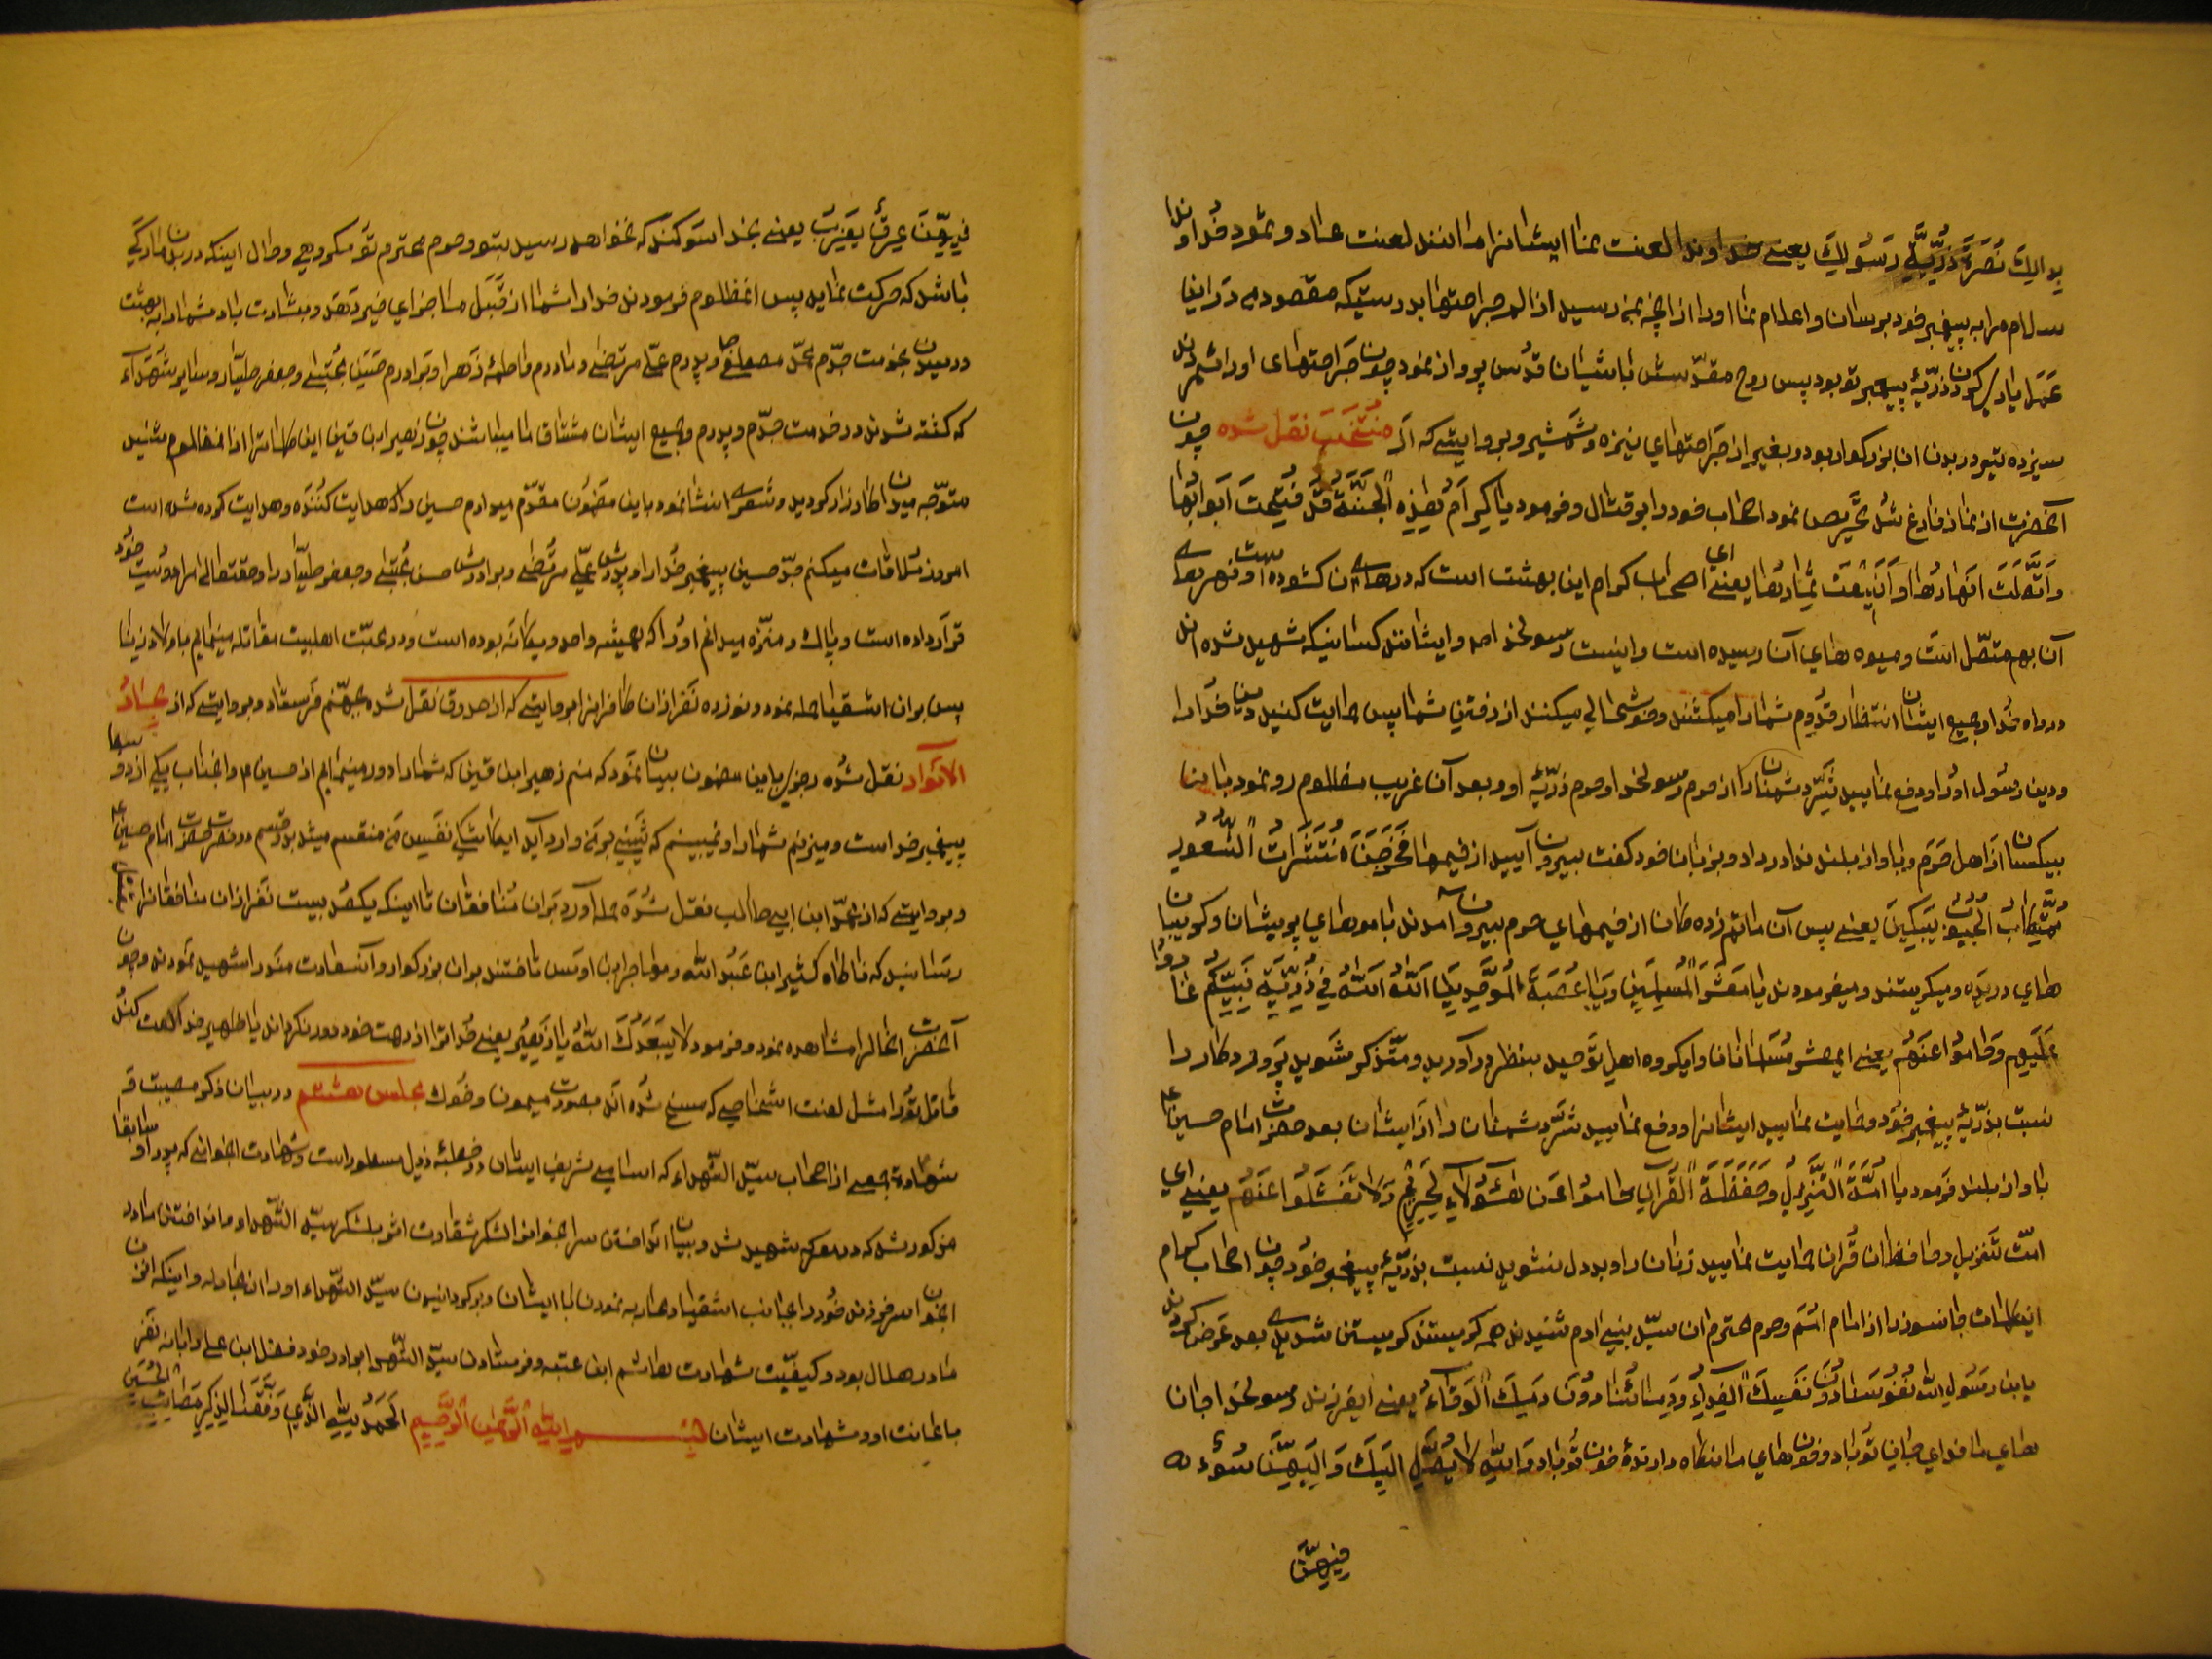 بذالك نصرة ذریة رسولك یعنی خداوندا لعنت نما ایشانرا مانند لعنت عاد و ثمود خداوندا
سلام مرا به پیغمبر خود برسان و اعلام نما او را از آنچه بمن رسید از الم جراحتها بدرستیکه مقصود من در این
عمل یاری کردن ذریهٔ پیغمبر تو بود پس روح مقدسش باشیان قدس پرواز نمود چون جراحتهای او را شمردند
سیزده تیر در بدن ان بزرکوار بود بغیر از جراحتهای نیزه و شمشیر و بروایتی که از منتخب نقل شده چون
آنحضرت از نماز فارغ شد تحریص نمود اصحاب خود را بر قتال و فرمود یا کرام هذه الجنة قد فتحت ابوابها
و اتصلت انهارها و اینعت ثمارها یعنی ای اصحاب کرام این بهشت است که درهای ان کشوده است و نهرهای
آن بهم متصل است و میوه های آن رسیده است و اینست رسولخدا و ایشانند کسانیکه شهید شده اند
در راه خدا و جمیع ایشان انتظار قدوم شما را میکشند و خوشحالی میکنند از رفتن شما پس حمایت کنید دین خدا را
و دین رسول او را و دفع نمایید شر دشمنان را از حرم رسولخدا و حرم ذریهٔ او و بعد آن غریب مظلوم رو نمود باین
بیکسان از اهل حرم و باواز بلند ندا در داد و بزبان خود کفت بیرون آیید از خیمها فخرجن منتشرات الشعور
مهتكات الجیوب یبکین یعنی پس آن ماتم زده کان از خیمهای حرم بیرون امدند با موهای پریشان و کریبان
های دریده و میکریستند و میفرمودند یا معشر المسلمین و یا عصبة الموحدین الله الله فی ذریة نبیکم
علیهم و حاموا عنهم یعنی ایمعشر مسلمانان و ایکروه اهل توحید بنظر در آورید و متذکر شوید پروردکار را
نسبت بذریهٔ پیغمبر خود و حمایت نمایید ایشانرا و دفع نمایید شر دشمنان را از ایشان بعد حضرت امام حسین ع
باواز بلند فرمود یا امة التنزیل و حفظة القرآن حاموا عن هؤلاء الحریم و لا تفشلوا عنهم یعنی ای
امت تنزیل و حافظان قران حمایت نمایید زنان را و بددل نشوید نسبت بذریهٔ پیغمبر خود چون اصحاب کرام
این کلمات جانسوز را از امام امم و حرم محترم ان سید بنی ادم شنیدند همه کریستند کریستن شدید بعد عرض کردند
یابن رسول الله نفوسنا دون نفسك الفداء و دمائنا دون دمك الوقاء یعنی ایفرزند رسولخدا جان
های ما فدای جان تو باد و خونهای ما نکاه دارندهٔ خون تو باد والله لا یصل الیك و الیهن سوء و
فیهن
فیهن عرق یضرب یعنی بخدا سوکند که نخواهد رسید بتو و حرم محترم تو مکروهی و حال اینکه در بدن ما رکی
باشد که حرکت نماید پس انمظلوم فرمودند خدا شما را از قبل ما جزای خیر دهد و بشارت باد شما را به بهشت
و رسیدن بخدمت جدم محمد مصطفی و پدرم علی مرتضی و مادرم فاطمهٔ زهرا و برادرم حسن مجتبی و جعفر طیار و سایر شهداء
که کشته شدند در خدمت جدم و پدرم و جمیع ایشان مشتاق ما میباشند چون زهیر ابن قین این کلماترا از انمظلوم شنید
متوجه میدان کارزار کردید و شعری انشا نمود باین مضمون مقدم میدارم حسین را که هدایت کننده و هدایت کرده شده است
امروز ملاقات میکنم جد حسین پیغمبر خدا را و پدرش علی مرتضی و برادرش حسن مجتبی و جعفر طیار را و حقتعالی مرا دوست خود
قرار داده است و پاك و منزه میدانم او را که همیشه واحد و یکانه بوده است و در محبت اهلبیت مقاتله مینمایم با اولاد زنا
پس بران اشقیا حمله نمود و نوزده نفر از ان کافران و بروایتی که از صدوق نقل شده بجهنم فرستاد و بروایتی که از بحار
الانوار نقل شده رجزی باین مضمون بیان نمود که منم زهیر ابن قین که شما را دور مینمایم از حسین و انجناب یکی از دو سبط
پیغمبر خداست و میزنم شما را و نمیبینم که شینی بر من وارد آید ایکاش یکنفس من منقسم میشد بدو قسم در نصرت حضرت امام حسین ع
و بروایتی که از محمد ابن ابی طالب نقل شده حمله آورد بران منافقان تا اینکه یکصد و بیست نفر از ان منافقانرا بقتل
رسانید که ناکاه کثیر ابن عبد الله و مهاجر ابن اوس تاختند بران بزرکوار و آنسعادتمند را شهید نمودند و چون
آنحضرت انحال را مشاهده نمود و فرمود لا یبعدك الله یا زهیر یعنی خدا ترا از رحمت خود دور نکرداند یا زهیر خدا لعنت کند
قاتل تو را مثل لعنت اشخاصی که مسخ شده اند بصورت میمون و خوك مجلس هشتم در بیان ذکر مصیبت و
شهادت جمعی از اصحاب سید الشهداء که اسامی شریف ایشان در خطبهٔ ذیل مسطور است و شهادت انجوانی که پدر او سابقا
مذکور شد که در معرکه شهید شد و بیان انداختن سر انجوان لشکر شقاوت اثر بلشکر سید الشهداء و انداختن مادر
انجوان سر فرزند خود را بجانب اشقیا و محاربه نمودن با ایشان و برکردانیدن سید الشهداء او را از مجادله و اینکه انزن
مادر هلال بود و کیفیت شهادت هاشم ابن عتبه و فرستادن سید الشهداء برادر خود فضل ابن علی را با نه نفر
باعانت او و شهادت ایشان بسم الله الرحمن الرحیم الحمد لله الذی وفقنا لذکر مصائب الحسین